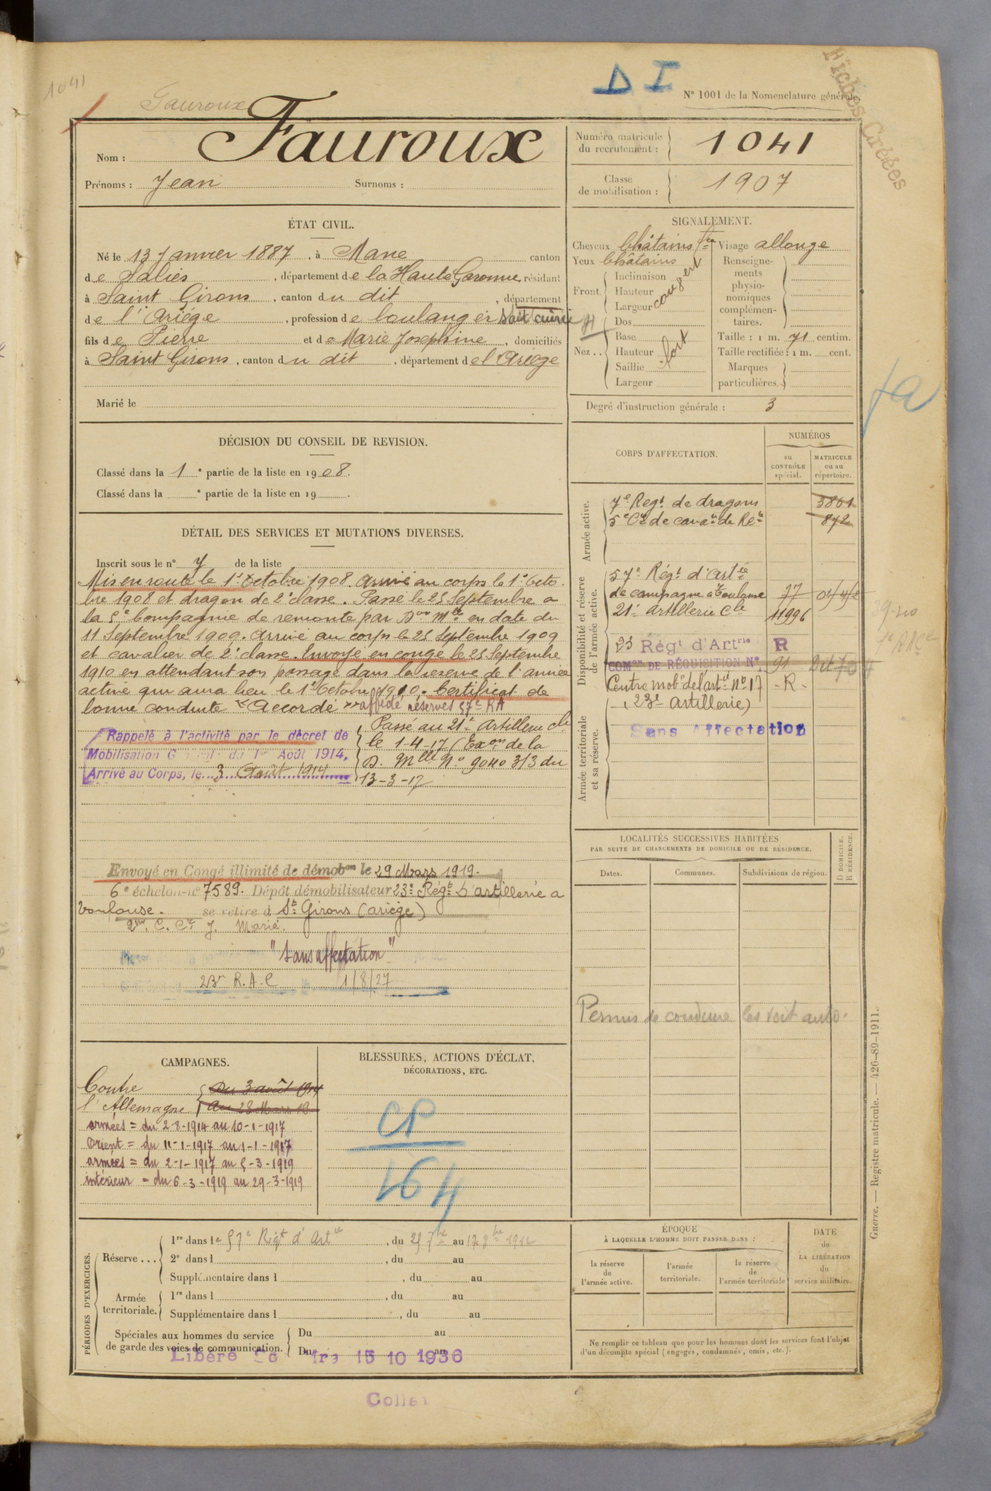 1041
Fauroux
D I
N° 1001 de la Nomenclature générale.
Fiches Créées
Nom : Fauroux
Prénoms : Jean Surnoms :
Numéro matricule du recrutement : 1041
Classe de mobilisation : 1907
ÉTAT CIVIL.
Né le 13 Janvier 1887, à Mane canton
de Salies, département de la Haute Garonne, résidant
à Saint Girons, canton du dit, département
de l'Ariège, profession de boulanger
fils de Pierre et de Marie Josephine, domiciliés
à Saint Girons, canton du dit, département de l'Ariège
Marié le
SIGNALEMENT.
Cheveux Châtains Visage allongé
Yeux Châtains
Front. Inclinaison
Hauteur
Largeur
Nez... Dos
Base
Hauteur
Saillie
Largeur
fort
Renseignements physionomiques complémentaires.
Taille : 1 m. 71 centim.
Taille rectifiée : 1 m. cent.
Marques particulières.
Degré d'instruction générale : 3
DÉCISION DU CONSEIL DE REVISION.
Classé dans la 1e partie de la liste en 1908.
Classé dans la e partie de la liste en 19 .
DÉTAIL DES SERVICES ET MUTATIONS DIVERSES.
Inscrit sous le n° 7 de la liste
Mis en route le 1er Octobre 1908. Arrivé au corps le 1er Octo-
bre 1908 et dragon de 2e classe. Passé le 25 Septembre a
la 5e Compagnie de remonte par Don Mlle en date du
11 Septembre 1909. Arrivé au corps le 25 Septembre 1909
et cavalier de 2e classe. Envoyé en congé le 25 Septembre
1910 en attendant son passage dans la réserve de l'armée
active qui aura lieu le 1er Octobre 1910. Certificat de
bonne conduite "Accordé" affecté réserves 57e RA
Rappelé à l'activité par le décret de
Mobilisation Générale du 1er Août 1914,
Arrivé au Corps, le 3 Août 1914
Passé au 21e Artillerie Cle
le 1-4-17 (Exon de la
D. Mlle N° 9040 3/3 du
13-3-17
Envoyé en Congé illimité de démobon le 29 Mars 1919.
6e échelon n° 7589. Dépôt démobilisateur 23e Régt d'artillerie à
Toulouse. se retire à St Girons (Ariège)
"Sans affectation"
23e R.A.C 1/8/27
CORPS D'AFFECTATION.
NUMÉROS
au CONTRÔLE spécial.
MATRICULE ou au répertoire.
Armée active.
7e Regt de dragons 3801
5e Cie de cavers de Rte 872
Disponibilité et réserve de l'armée active.
57e Régt d'Artie
de campagne a Toulouse 77
21e Artillerie Cle 11996
23 Régt d'Artie R
COMon DE RÉQUISITION N° 91
Centre mobon de l'artie N° 17 - R -
(23e Artillerie)
Armée territoriale et sa réserve.
Sans Affectation
LOCALITÉS SUCCESSIVES HABITÉES
PAR SUITE DE CHANGEMENTS DE DOMICILE OU DE RÉSIDENCE.
Dates. Communes. Subdivisions de région. D DOMICILE. R RÉSIDENCE.
Permis de conduire les voit auto.
CAMPAGNES.
Contre l'Allemagne
Du 3 août 1914
au 28 Mars 19
armées = du 2-8-1914 au 10-1-1917
Orient = du 11-1-1917 au 1-1-1917
armées = du 2-1-1917 au 5-3-1919
intérieur = du 6-3-1919 au 29-3-1919
BLESSURES, ACTIONS D'ÉCLAT,
DÉCORATIONS, ETC.
CP
164
PÉRIODES D'EXERCICES.
Réserve... 1re dans le 57e Régt d'Artie, du 25 7bre au
2e dans l , du au
Supplémentaire dans l , du au
Armée territoriale. 1re dans l , du au
Supplémentaire dans l , du au
Spéciales aux hommes du service de garde des voies de communication. Du au
Du au
Libéré 15 10 1936
ÉPOQUE
À LAQUELLE L'HOMME DOIT PASSER DANS :
la réserve de l'armée active.
l'armée territoriale.
la réserve de l'armée territoriale
DATE de LA LIBÉRATION du service militaire.
Ne remplir ce tableau que pour les hommes dont les services font l'objet
d'un décompte spécial (engagés, condamnés, omis, etc.).
Guerre. — Registre matricule. — 426-89-1911.